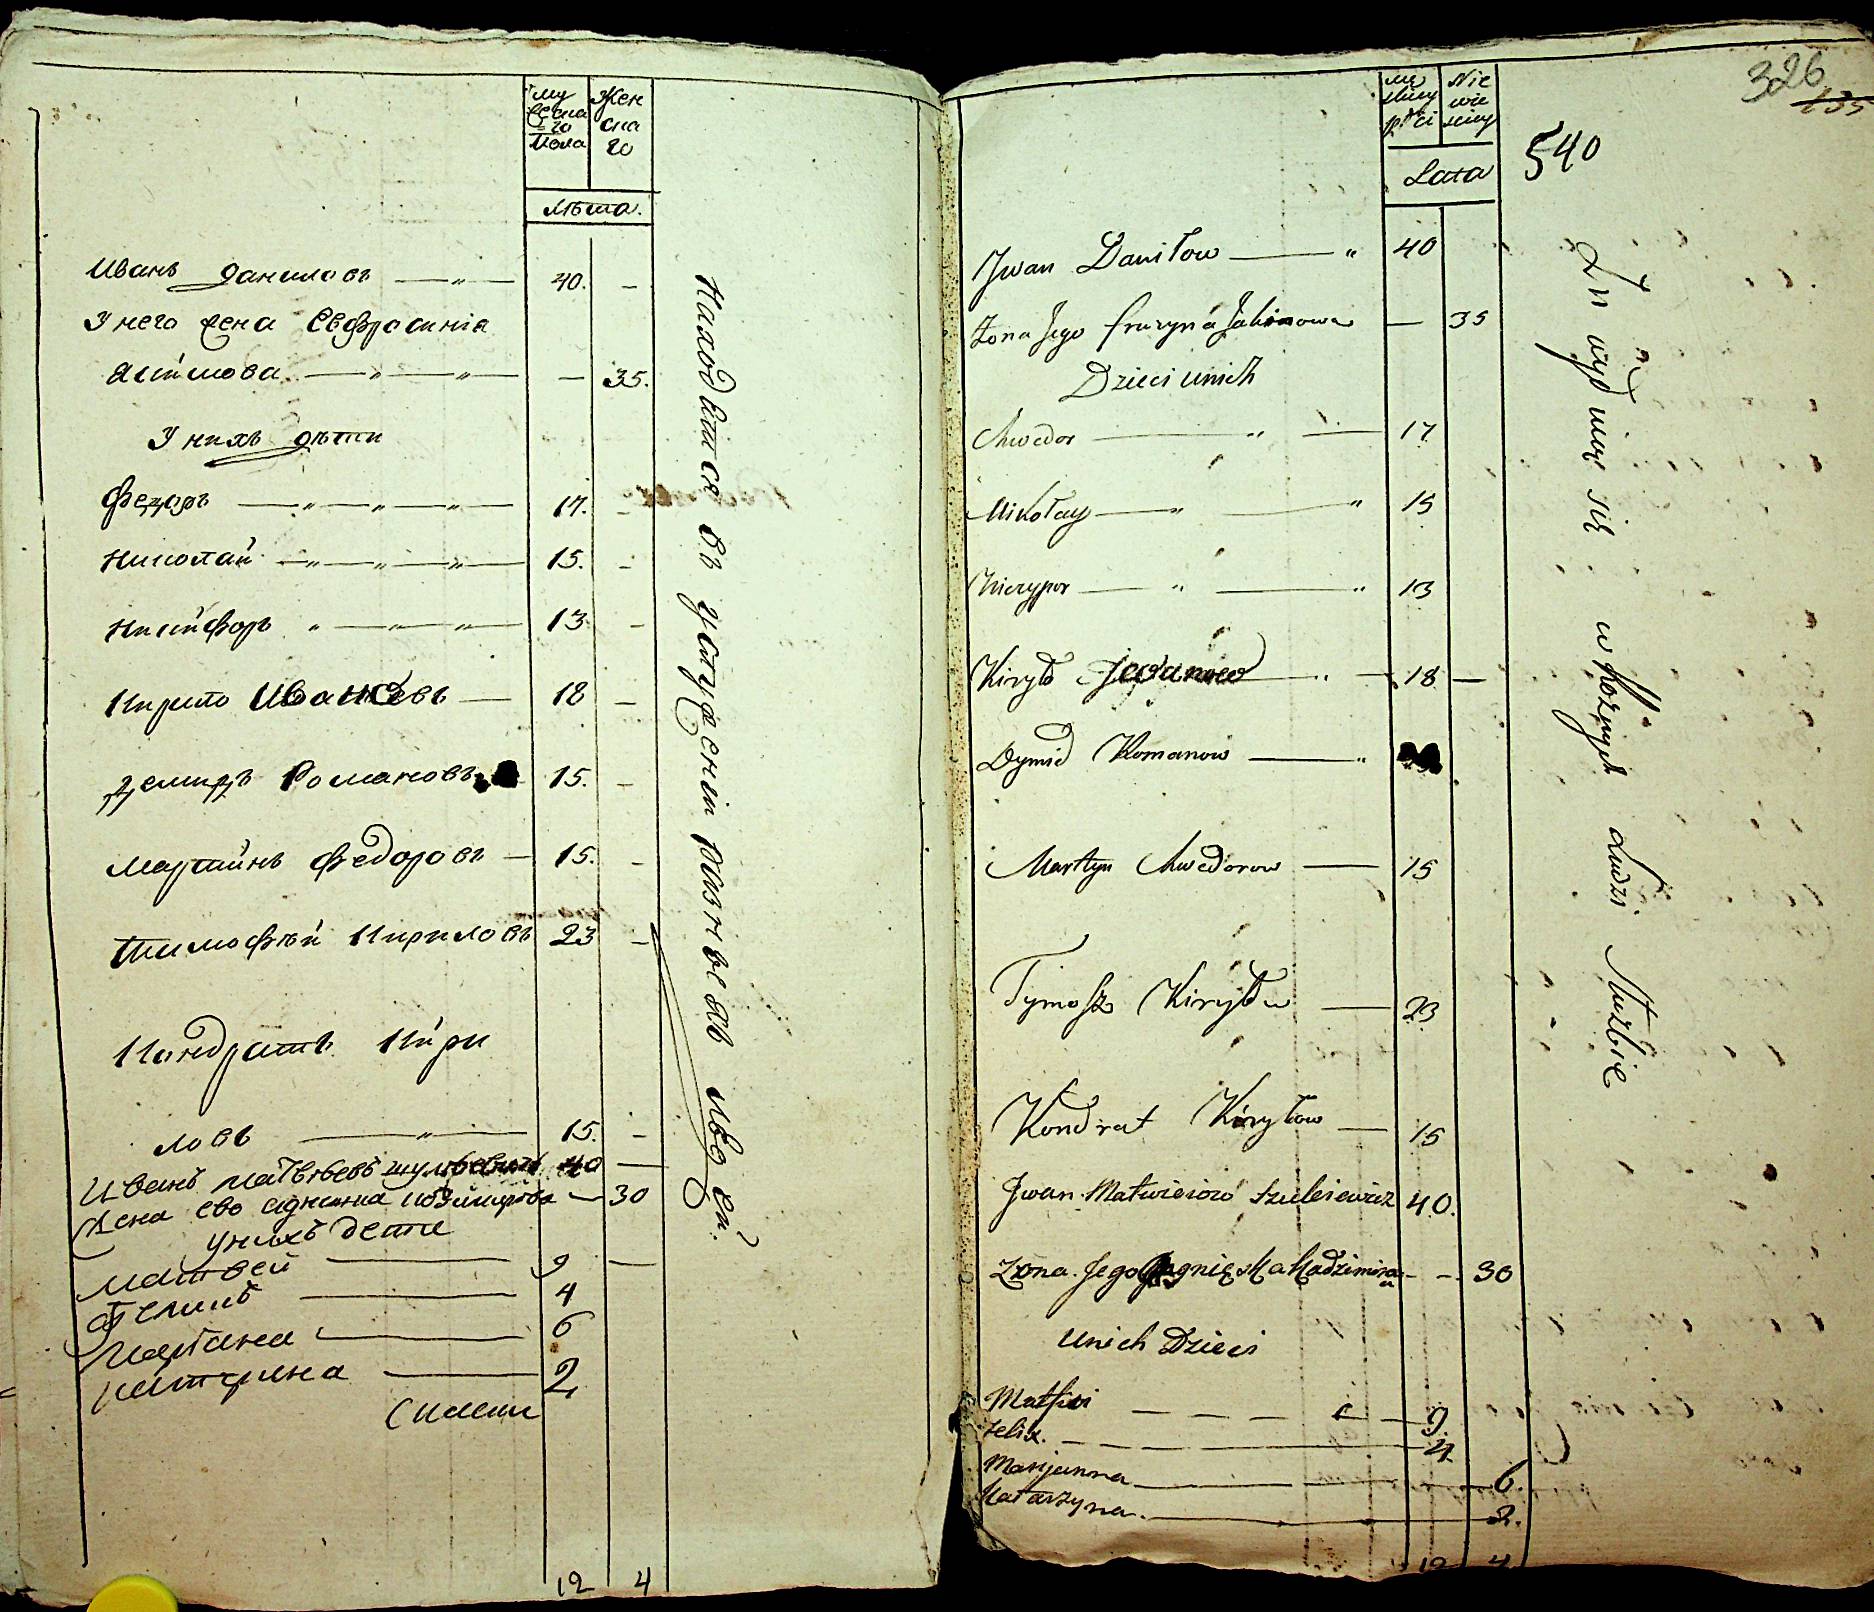 му жеска го пола
Жен ска го
лѣта.
Иванъ Даниловъ 40.
У него жена Евфросинія
Якимова 35.
У нихъ дѣти
Федоръ 17.
Николай 15.
Никифоръ 13
Кирило Ивановъ 18
Демидъ Романовъ 15.
Мартинъ Федоровъ 15.
Тимофѣй Кириловъ 23
Кондратъ Кири
ловъ 15.
Иванъ Матвѣевъ 40
Жена ево 30
унихъ дети
Матвей 9
4
Марiана 6
Катерина 2
12 4
Находятся въ услуженіи разныхъ людей.
326
135
540
Mę skiey płci
Nie wie sciey
Lata
Jwan Daniłow 40
Zona Jego fruzyna Jakimowa 35
Dzieci unich
Chwedor 17
Mikołay 15
Niczypor 13
Kiryło Jwanow 18
Dymid Romanow
Martyn Chwedorow 15
Tymosz Kiryłow 23
Kondrat Kiryłow 15
Jwan Matwieiow Szulciewicz 40.
Zona Jego Agnięszka Kadzimira 30
unich Dzieci
9.
felix. 4.
Marjanna 6.
Katarzyna. 2.
12 4
się w Rożnych Ludzi Służbie